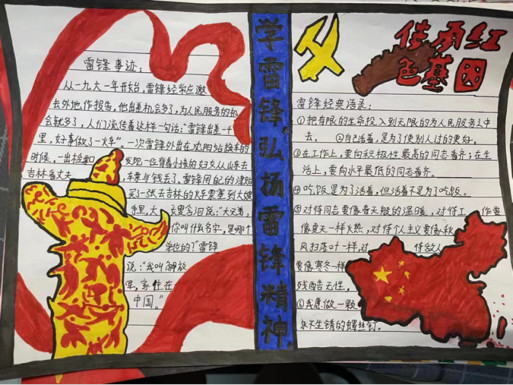 雷锋事迹:
从一九六一年开始,雷锋经常应邀
去外地作报告,他出差机会多了,为人民服务的机
会就多了,人们流传着这样一句话:“雷锋出差一千
里,好事做了一火车”。一次雷锋外出在沈阳站换车的
时候,一出检票
发现一位背着小孩的妇女从山东去
吉林看丈夫
车票与钱丢了。雷锋用自己的津贴
买一张去吉林的火车票塞到大嫂
手里,大
含着泪说:“大兄弟,
你叫什么名字,是哪个
单位的?”雷锋
说:“我叫解放
军,家住在
中国。”
学雷锋,弘扬雷锋精神
传承红
色基因
雷锋经典语录:
①把有限的生命投入到无限的为人民服务之中
去。 ②自己活着,是为了使别人过的更好。
③在工作上,要向积极性最高的同志看齐;在生
活上,要向水平最低的同志看齐。
④吃饭是为了活着,但活着不是为了吃饭。
⑤对待同志要像春天般的温暖,对待工作要
像夏天一样火热,对待个人主义要像秋
风扫落叶一样,对待敌人
要像寒冬一样
残酷无情。
⑥我愿做一颗
永不生锈的螺丝钉。